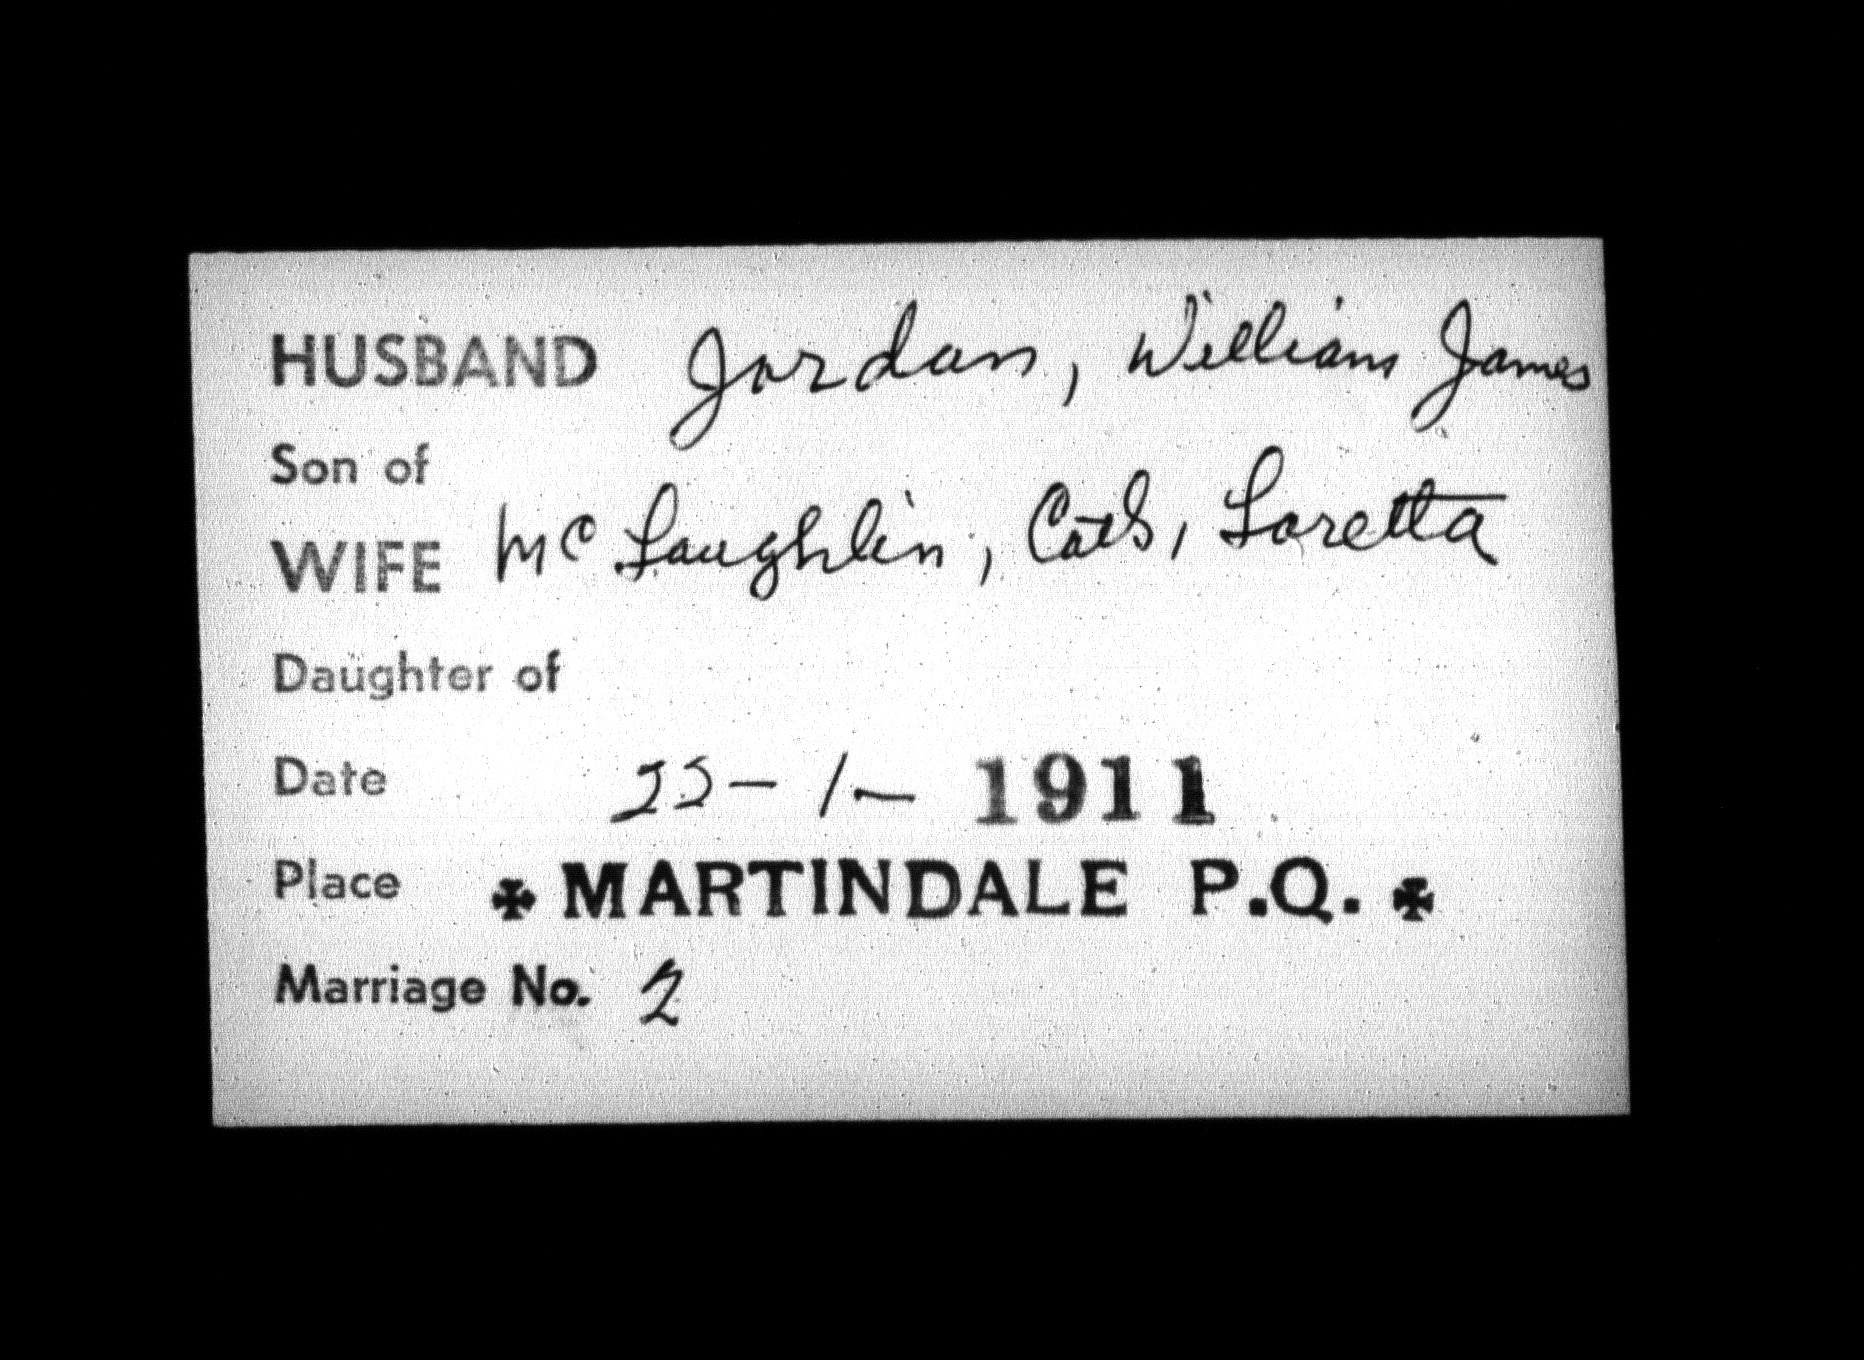 HUSBAND Jordan, William James
Son of
WIFE McLaughlin, Cath, Loretta
Daughter of
Date 25 - 1 - 1911
Place ✠ MARTINDALE P.Q. ✠
Marriage No. 2